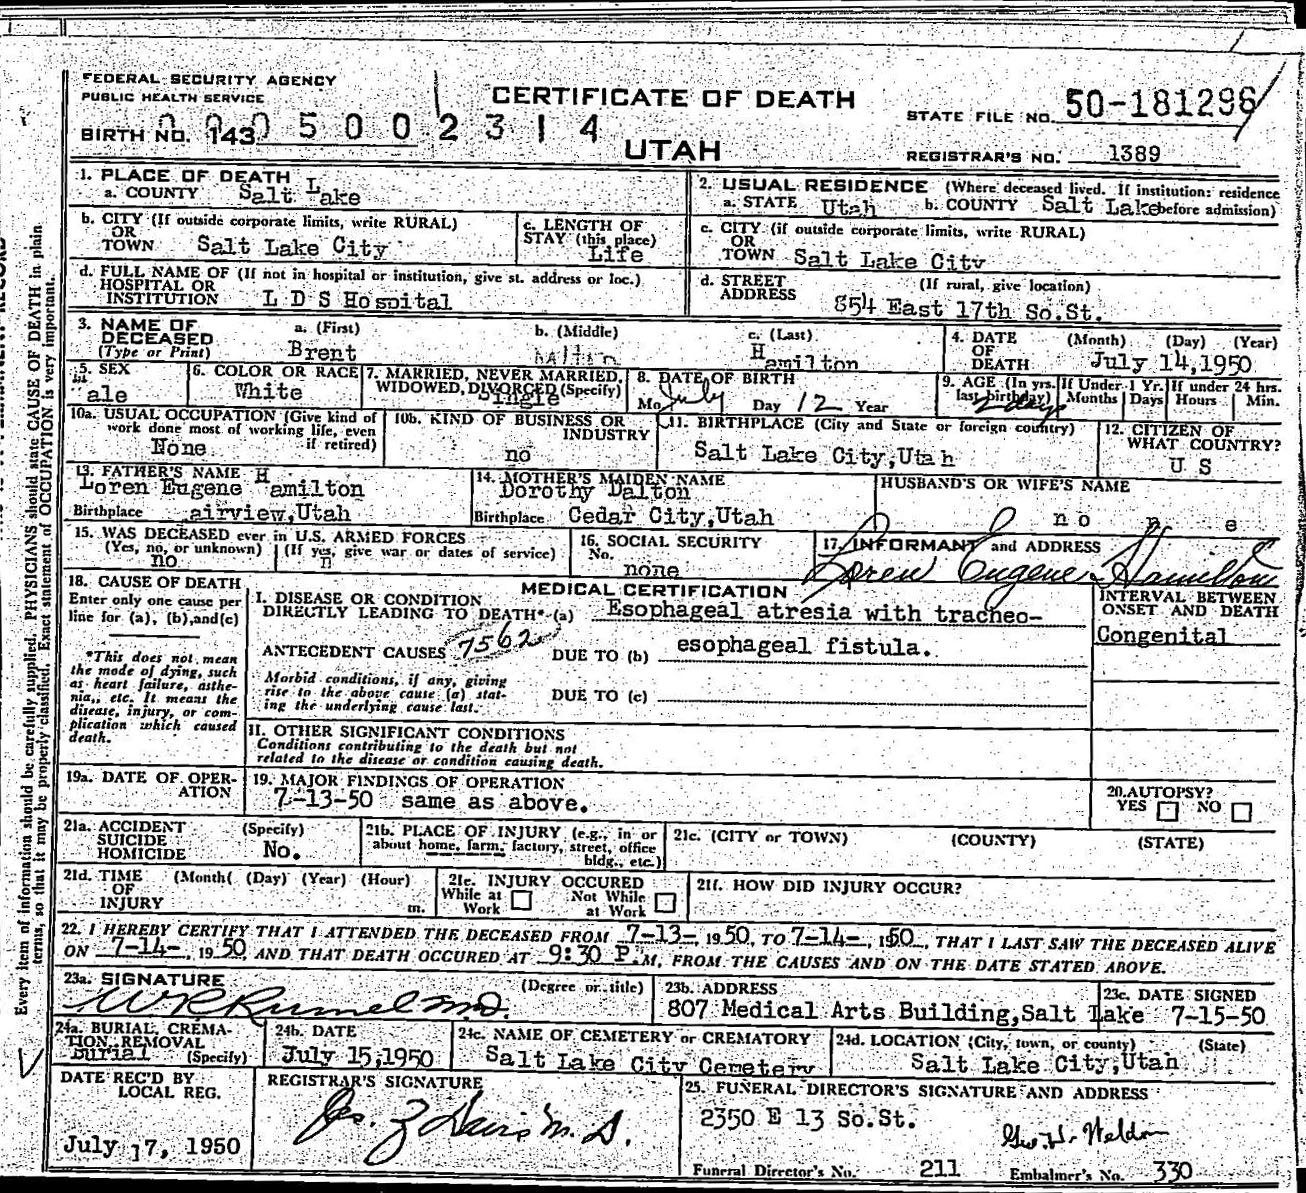 FEDERAL SECURITY AGENCY
PUBLIC HEALTH SERVICE
BIRTH NO. 143 0 5 0 0 2 3 1 4
CERTIFICATE OF DEATH
UTAH
STATE FILE NO. 50-181296
REGISTRAR'S NO. 1389
1. PLACE OF DEATH
a. COUNTY Salt Lake
2. USUAL RESIDENCE (Where deceased lived. If institution: residence before admission)
a. STATE Utah b. COUNTY Salt Lake
b. CITY (If outside corporate limits, write RURAL)
OR
TOWN Salt Lake City
c. LENGTH OF
STAY (this place)
Life
c. CITY (if outside corporate limits, write RURAL)
OR
TOWN Salt Lake City
d. FULL NAME OF (If not in hospital or institution, give st. address or loc.)
HOSPITAL OR
INSTITUTION L D S Hospital
d. STREET (If rural, give location)
ADDRESS 854 East 17th So.St.
3. NAME OF
DECEASED
(Type or Print)
a. (First) b. (Middle) c. (Last)
Brent Hamilton
4. DATE (Month) (Day) (Year)
OF
DEATH July 14,1950
5. SEX
Male
6. COLOR OR RACE
White
7. MARRIED, NEVER MARRIED,
WIDOWED, DIVORCED (Specify)
Single
8. DATE OF BIRTH
Mo July Day 12 Year
9. AGE (In yrs. last birthday) If Under 1 Yr. If under 24 hrs.
Months Days Hours Min.
2 days
10a. USUAL OCCUPATION (Give kind of
work done most of working life, even
if retired)
None
10b. KIND OF BUSINESS OR
INDUSTRY
no
11. BIRTHPLACE (City and State or foreign country)
Salt Lake City,Utah
12. CITIZEN OF
WHAT COUNTRY?
U S
13. FATHER'S NAME
Loren Eugene Hamilton
Birthplace airview,Utah
14. MOTHER'S MAIDEN NAME
Dorothy Dalton
Birthplace Cedar City,Utah
HUSBAND'S OR WIFE'S NAME
no n e
15. WAS DECEASED ever in U.S. ARMED FORCES
(Yes, no, or unknown) (If yes, give war or dates of service)
no n
16. SOCIAL SECURITY
No.
none
17. INFORMANT and ADDRESS
Loren Eugene Hamilton
18. CAUSE OF DEATH
Enter only one cause per
line for (a), (b), and (c)
*This does not mean
the mode of dying, such
as heart failure, asthe-
nia,, etc. It means the
disease, injury, or com-
plication which caused
death.
MEDICAL CERTIFICATION
I. DISEASE OR CONDITION
DIRECTLY LEADING TO DEATH* (a) Esophageal atresia with tracheo-
ANTECEDENT CAUSES 7562 DUE TO (b) esophageal fistula.
Morbid conditions, if any, giving
rise to the above cause (a) stat-
ing the underlying cause last.
DUE TO (c)
INTERVAL BETWEEN
ONSET AND DEATH
Congenital
II. OTHER SIGNIFICANT CONDITIONS
Conditions contributing to the death but not
related to the disease or condition causing death.
19a. DATE OF OPER-
ATION
19. MAJOR FINDINGS OF OPERATION
7-13-50 same as above.
20. AUTOPSY?
YES NO
21a. ACCIDENT (Specify)
SUICIDE
HOMICIDE No.
21b. PLACE OF INJURY (e.g., in or
about home, farm, factory, street, office
bldg., etc.)
21c. (CITY or TOWN) (COUNTY) (STATE)
21d. TIME (Month( (Day) (Year) (Hour)
OF
INJURY m.
21e. INJURY OCCURED
While at Work Not While at Work
21f. HOW DID INJURY OCCUR?
22. I HEREBY CERTIFY THAT I ATTENDED THE DECEASED FROM 7-13-, 1950, TO 7-14-, 1950, THAT I LAST SAW THE DECEASED ALIVE
ON 7-14-, 1950, AND THAT DEATH OCCURED AT 9:30 P.M, FROM THE CAUSES AND ON THE DATE STATED ABOVE.
23a. SIGNATURE (Degree or title)
W R Rumel M.D.
23b. ADDRESS
807 Medical Arts Building,Salt Lake
23c. DATE SIGNED
7-15-50
24a. BURIAL, CREMA-
TION, REMOVAL
Burial (Specify)
24b. DATE
July 15,1950
24c. NAME OF CEMETERY or CREMATORY
Salt Lake City Cemetery
24d. LOCATION (City, town, or county) (State)
Salt Lake City,Utah
DATE REC'D BY
LOCAL REG.
July 17, 1950
REGISTRAR'S SIGNATURE
25. FUNERAL DIRECTOR'S SIGNATURE AND ADDRESS
2350 E 13 So.St.
Funeral Director's No. 211 Embalmer's No. 330
Every item of information should be carefully supplied. PHYSICIANS should state CAUSE OF DEATH in plain
terms, so that it may be properly classified. Exact statement of OCCUPATION is very important.